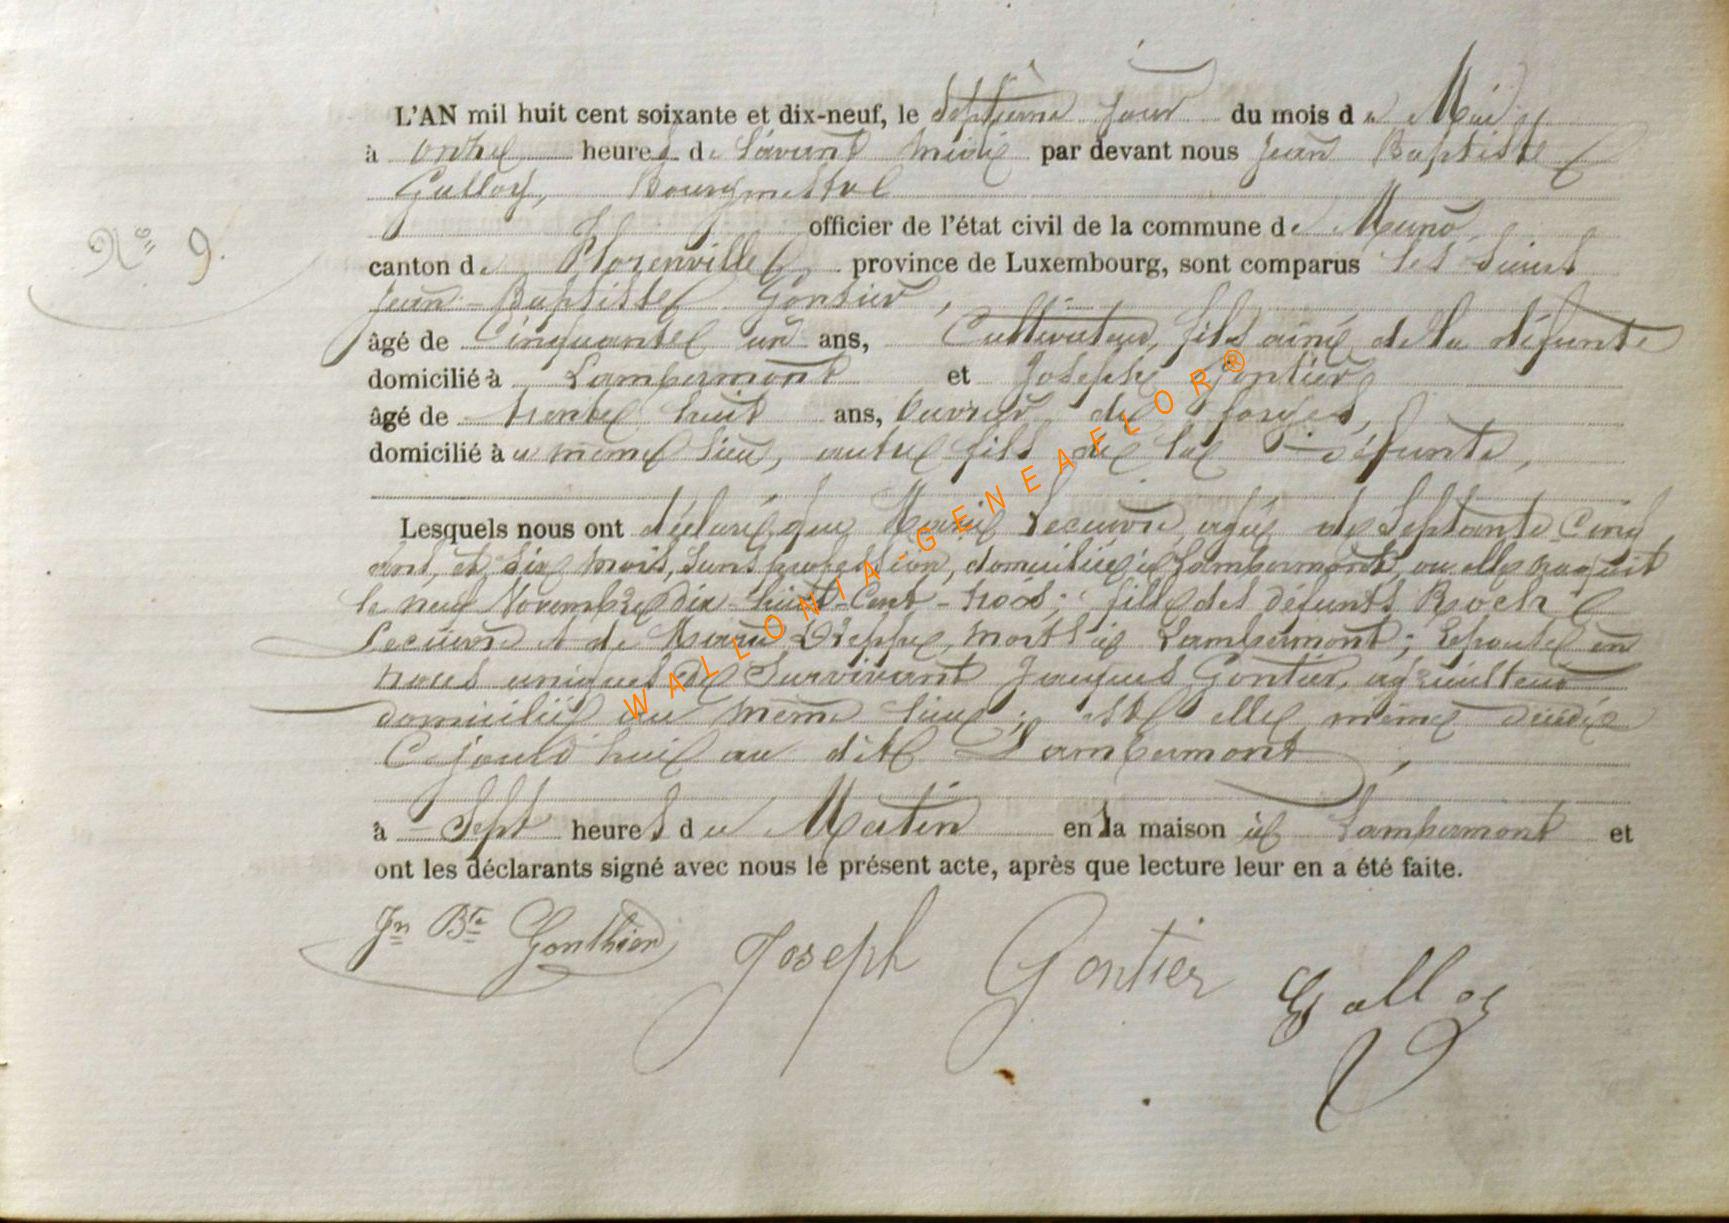 L'AN mil huit cent soixante et dix-neuf, le septième jour du mois de Mai
à onze heures de l'avant midi par devant nous Jean Baptiste
Galloy, Bourgmestre
officier de l'état civil de la commune de Muno,
N° 9.
canton de Florenville, province de Luxembourg, sont comparus les sieurs
Jean-Baptiste Gontier,
âgé de Cinquante un ans, Cultivateur, fils ainé de la défunte
domicilié à Lambermont et Joseph Gontier,
âgé de trente huit ans, Ouvrier de forges,
domicilié au même lieu, autre fils de la défunte,
Lesquels nous ont déclaré que Marie Lecuivre, agée de Septante Cinq
ans, et six mois, sans profession, domiciliée à Lambermont, ou elle naquit
le neuf Novembre dix-huit-Cent-trois; fille des défunts Roch
Lecuivre et de Marie morts à Lambermont; Epouse en
noces uniques de Survivant Jacques Gontier, agriculteur
domicilié au même lieu; est elle même décédée
Cejourd'hui au dit Lambermont,
à Sept heures du Matin en la maison à Lambermont et
ont les déclarants signé avec nous le présent acte, après que lecture leur en a été faite.
Jn Bte Gonthier Joseph Gontier Galloy
WALLONIA-GENEAFLOR®